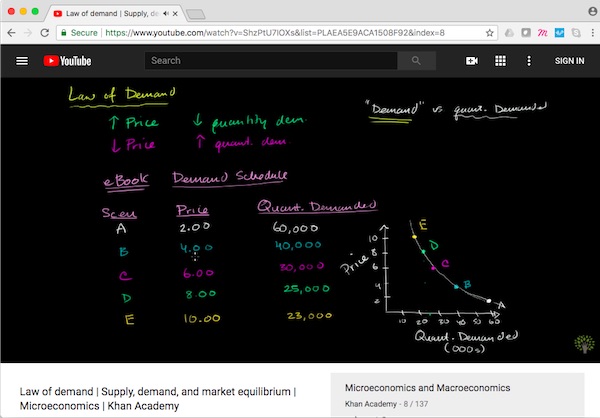 Law of demand | Supply, de
Secure | https://www.youtube.com/watch?v=ShzPtU7IOXs&list=PLAEA5E9ACA1508F92&index=8
YouTube Search SIGN IN
Law of Demand
"Demand" vs quant. Demanded
↑ Price ↓ quantity dem.
↓ Price ↑ quant. dem
eBook Demand Schedule
Scen Price Quant. Demanded
A 2.00 60,000
B 4.00 40,000
C 6.00 30,000
D 8.00 25,000
E 10.00 23,000
Price
10
8
6
4
2
E
D
C
B
A
10 20 30 40 50 60
Quant. Demanded
(000s)
Law of demand | Supply, demand, and market equilibrium |
Microeconomics | Khan Academy
Microeconomics and Macroeconomics
Khan Academy - 8 / 137